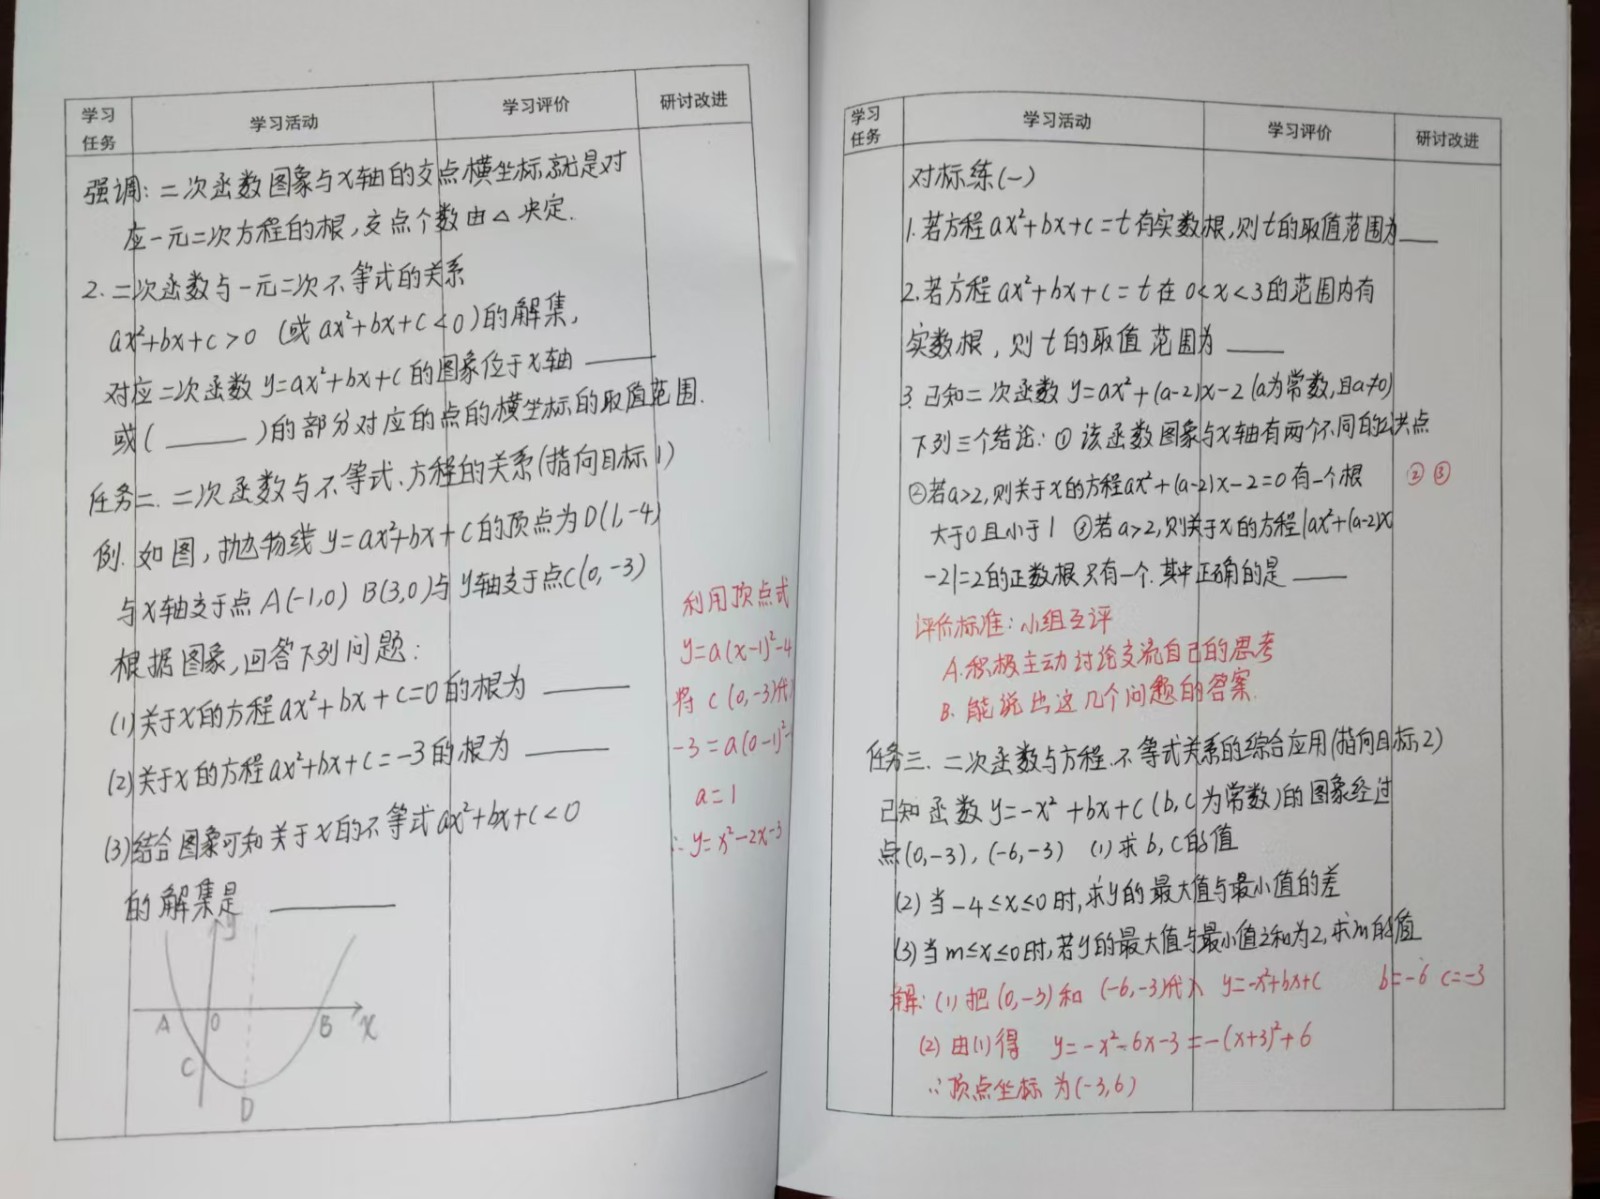 学习任务 学习活动 学习评价 研讨改进
强调：二次函数图象与x轴的交点横坐标，就是对
应一元二次方程的根，交点个数由△决定.
2.二次函数与一元二次不等式的关系
ax²+bx+c>0 (或ax²+bx+c<0)的解集，
对应二次函数y=ax²+bx+c的图象位于x轴 ____
或(____)的部分对应的点的横坐标的取值范围.
任务二.二次函数与不等式、方程的关系(指向目标1)
例.如图，抛物线y=ax²+bx+c的顶点为D(1,-4)
与x轴交于点A(-1,0) B(3,0)与y轴交于点C(0,-3)
根据图象，回答下列问题：
(1)关于x的方程ax²+bx+c=0的根为 ____
(2)关于x的方程ax²+bx+c=-3的根为 ____
(3)结合图象可知关于x的不等式ax²+bx+c<0
的解集是 ____
利用顶点式
y=a(x-1)²-4
将C(0,-3)代
-3=a(0-1)²-
a=1
∴y=x²-2x-3
y
A O B x
C
D
学习任务 学习活动 学习评价 研讨改进
对标练(一)
1.若方程ax²+bx+c=t有实数根，则t的取值范围为____
2.若方程ax²+bx+c=t在0<x<3的范围内有
实数根，则t的取值范围为 ____
3.已知二次函数y=ax²+(a-2)x-2(a为常数，且a≠0)
下列三个结论：①该函数图象与x轴有两个不同的公共点
②若a>2，则关于x的方程ax²+(a-2)x-2=0有一个根 ②③
大于0且小于1 ③若a>2，则关于x的方程|ax²+(a-2)x
-2|=2的正数根只有一个.其中正确的是 ____
评价标准：小组互评
A.积极主动讨论交流自己的思考
B.能说出这几个问题的答案.
任务三.二次函数与方程.不等式关系的综合应用(指向目标2)
已知函数y=-x²+bx+c(b,c为常数)的图象经过
点(0,-3)，(-6,-3) (1)求b,c的值
(2)当-4≤x≤0时，求y的最大值与最小值的差
(3)当m≤x≤0时，若y的最大值与最小值之和为2，求m的值
解：(1)把(0,-3)和(-6,-3)代入 y=-x²+bx+c b=-6 c=-3
(2)由(1)得 y=-x²-6x-3=-(x+3)²+6
∴顶点坐标为(-3,6)